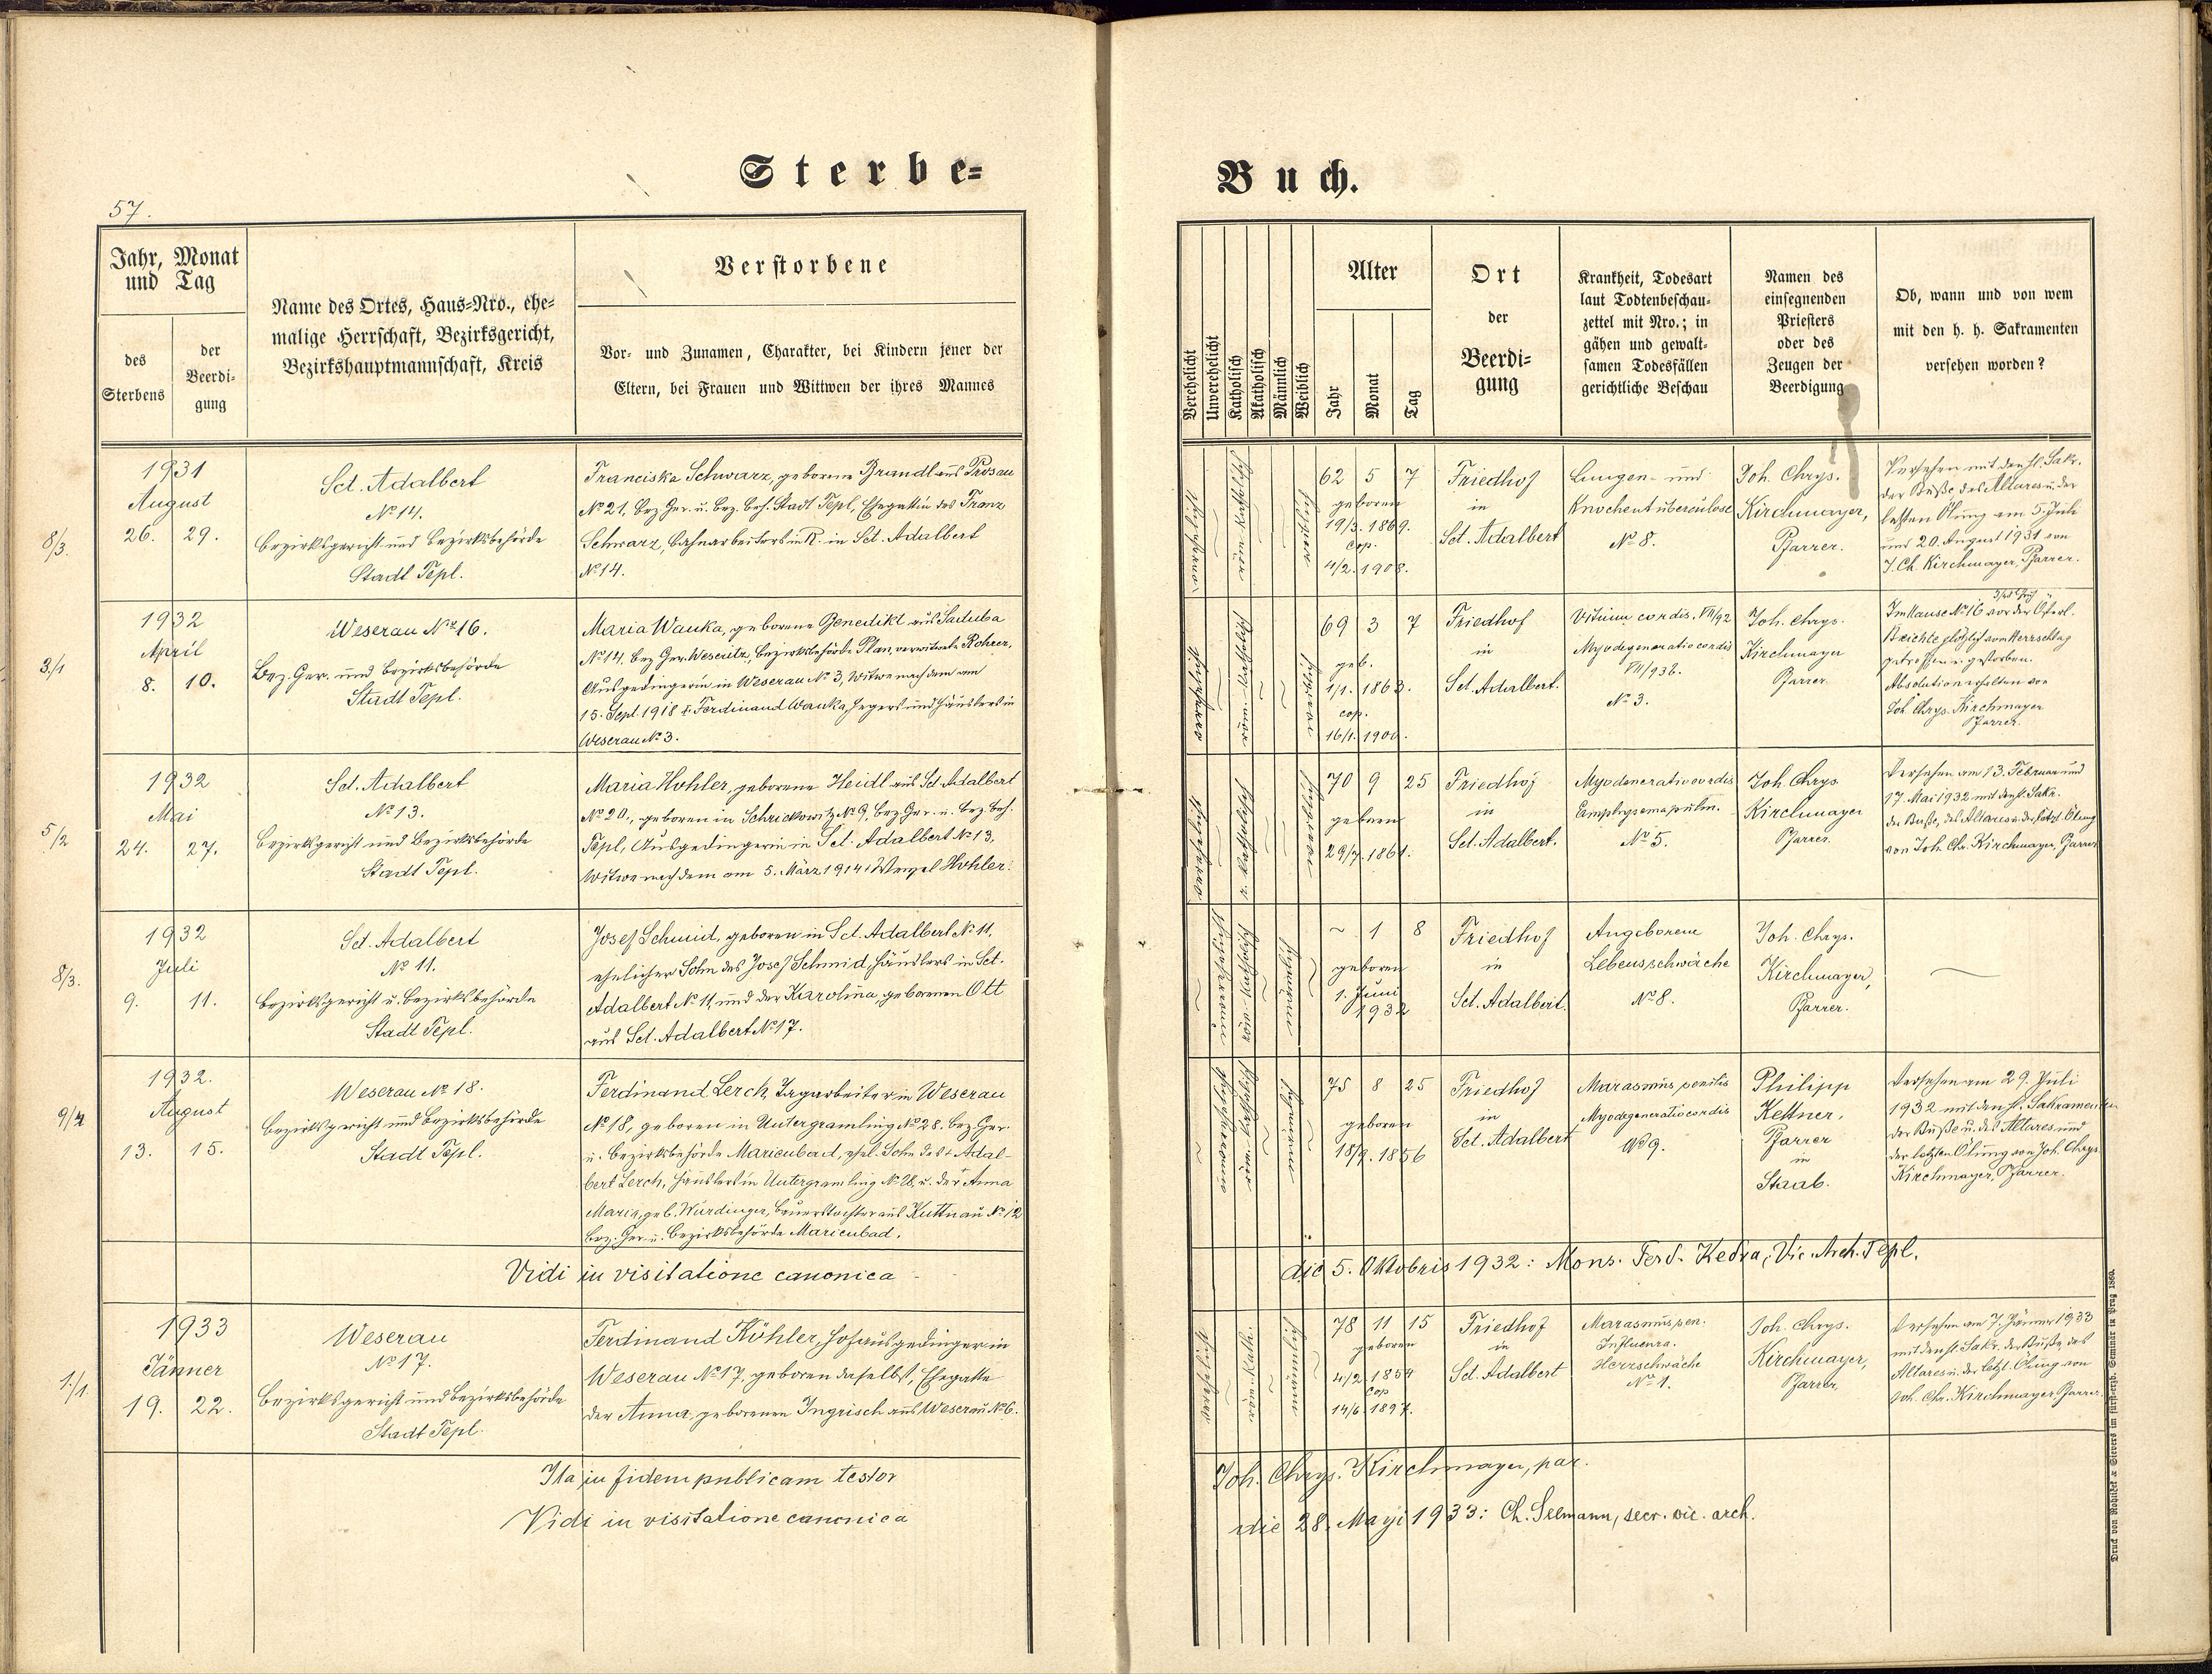 Sterbe-
Buch.
57.
Jahr, Monat
und Tag
des
Sterbens
der
Beerdi-
gung
Name des Ortes, Haus-Nro., ehe-
malige Herrschaft, Bezirksgericht,
Bezirkshauptmannschaft, Kreis
Verstorbene
Vor- und Zunamen, Charakter, bei Kindern jener der
Eltern, bei Frauen und Wittwen der ihres Mannes
Verehelicht
Unverehelicht
Katholisch
Akatholisch
Männlich
Weiblich
Alter
Jahr
Monat
Tag
Ort
der
Beerdi-
gung
Krankheit, Todesart
laut Todtenbeschau-
zettel mit Nro.; in
gähen und gewalt-
samen Todesfällen
gerichtliche Beschau
Namen des
einsegnenden
Priesters
oder des
Zeugen der
Beerdigung
Ob, wann und von wem
mit den h. h. Sakramenten
versehen worden?
8/3.
1931
August
26. 29.
Sct. Adalbert
No 14.
Bezirksgericht und Bezirksbehörde
Stadt Tepl.
Franciska Schwarz, geborene Brandl aus Prosau
No 21, Bez. Ger. u. Bez. Beh. Stadt Tepl, Ehegattin des Franz
Schwarz, Bahnarbeiters in R. in Sct. Adalbert
No 14.
62 5 7
geboren
19/3. 1869.
cop.
4/2. 1908.
Friedhof
in
Sct. Adalbert
Lungen- und
Knochentuberculose
No 8.
Joh. Chrys.
Kirchmayer,
Pfarrer.
Versehen mit den hl. Sakr.
der Buße, des Altares u. der
letzten Ölung am 5. Juli
und 20. August 1931 von
J. Ch. Kirchmayer, Pfarrer.
3/1
1932
April
8. 10.
Weserau No 16.
Bez. Ger. und Bezirksbehörde
Stadt Tepl.
Maria Wauka, geborene Benedikt aus
No 14, Bez. Ger. Weseritz, Bezirksbehörde Plan, verwitwete Rohrer,
Ausgedingerin in Weserau No 3, Witwe nach dem am
15. Sept. 1918 † Ferdinand Wauka, Hegers und Häuslers in
Weserau No 3.
69 3 7
geb.
1/1. 1863.
cop.
16/1. 1900.
Friedhof
in
Sct. Adalbert.
Vitium cordis,
Myodegeneratio cordis
No 3.
Joh. Chrys.
Kirchmayer
Pfarrer
Im Hause No 16 vor der Österl.
Beichte plötzlich vom Herzschlag
getroffen u. gestorben.
Absolution erhalten von
Joh. Chrys. Kirchmayer
Pfarrer.
5/2
1932
Mai
24. 27.
Sct. Adalbert
No 13.
Bezirksgericht und Bezirksbehörde
Stadt Tepl.
Maria Hohler, geborene Heidl aus Sct. Adalbert
No 20., geboren in Schrickowitz No 9, Bez. Ger. u. Bez. Beh.
Tepl, Ausgedingerin in Sct. Adalbert No 13,
Witwe nach dem am 5. März 1914 † Wenzel Hohler.
70 9 25
geboren
29/7. 1861.
Friedhof
in
Sct. Adalbert.
Myodeneratio cordis
Emphysema pulm.
No 5.
Joh. Chrys.
Kirchmayer
Pfarrer.
Versehen am 13. Februar und
17. Mai 1932 mit den hl. Sakr.
der Buße, des Altares u. der letzt. Ölung
von Joh. Chr. Kirchmayer, Pfarrer
8/3.
1932
Juli
9. 11.
Sct. Adalbert
No 11.
Bezirksgericht u. Bezirksbehörde
Stadt Tepl.
Josef Schmid, geboren in Sct. Adalbert No 11,
ehelicher Sohn des Josef Schmid, Häuslers in Sct.
Adalbert No 11, und der Karolina, geborenen Ott
aus Sct. Adalbert No 17.
~ 1 8
geboren
1. Juni
1932
Friedhof
in
Sct. Adalbert.
Angeborene
Lebensschwäche
No 8.
Joh. Chrys.
Kirchmayer,
Pfarrer.
9/4
1932.
August
13. 15.
Weserau No 18.
Bezirksgericht und Bezirksbehörde
Stadt Tepl.
Ferdinand Lerch, Tagarbeiter in Weserau
No 18, geboren in Untergramling No 28. Bez. Ger.
u. Bezirksbehörde Marienbad, ehel. Sohn des † Adal-
bert Lerch, Häuslers in Untergramling No 28, u. der Anna
Maria, geb. Würdinger, Bauerstochter aus Kuttnau No 12
Bez. Ger. u. Bezirksbehörde Marienbad.
75 8 25
geboren
18/9. 1856
Friedhof
in
Sct. Adalbert
Marasmus senilis
Myodegeneratio cordis
No 9.
Philipp
Kettner.
Pfarrer
in
Staab.
Versehen am 29. Juli
1932 mit den hl. Sakramenten
der Buße u. des Altares und
der letzten Ölung von Joh. Chrys.
Kirchmayer, Pfarrer.
Vidi in visitatione canonica
die 5. Oktobris 1932: Mons. Ferd. Kedra, Vic. Arch. Tepl.
1./1.
1933
Jänner
19. 22.
Weserau
No 17.
Bezirksgericht und Bezirksbehörde
Stadt Tepl.
Ferdinand Köhler, Hofausgedinger in
Weserau No 17, geboren daselbst, Ehegatte
der Anna, geborenen Ingrisch aus Weserau No 6.
78 11 15
geboren
4/2. 1854
cop
14/6. 1897.
Friedhof
in
Sct. Adalbert
Marasmus sen.
Influenza.
Herzschwäche
No 1.
Joh. Chrys.
Kirchmayer,
Pfarrer,
Versehen am 7. Jänner 1933
mit den hl. Sakr. der Buße, des
Altares u. der letzt. Ölung von
Joh. Chr. Kirchmayer Pfarrer.
Ita in fidem publicam testor
Joh. Chrys. Kirchmayer, par.
Vidi in visitatione canonica
die 28. Maji 1933: Ch. Selmann, secr. vic. arch.
Druck von Rohliček & Sievers im fürsterzb. Seminar in Prag 1860.